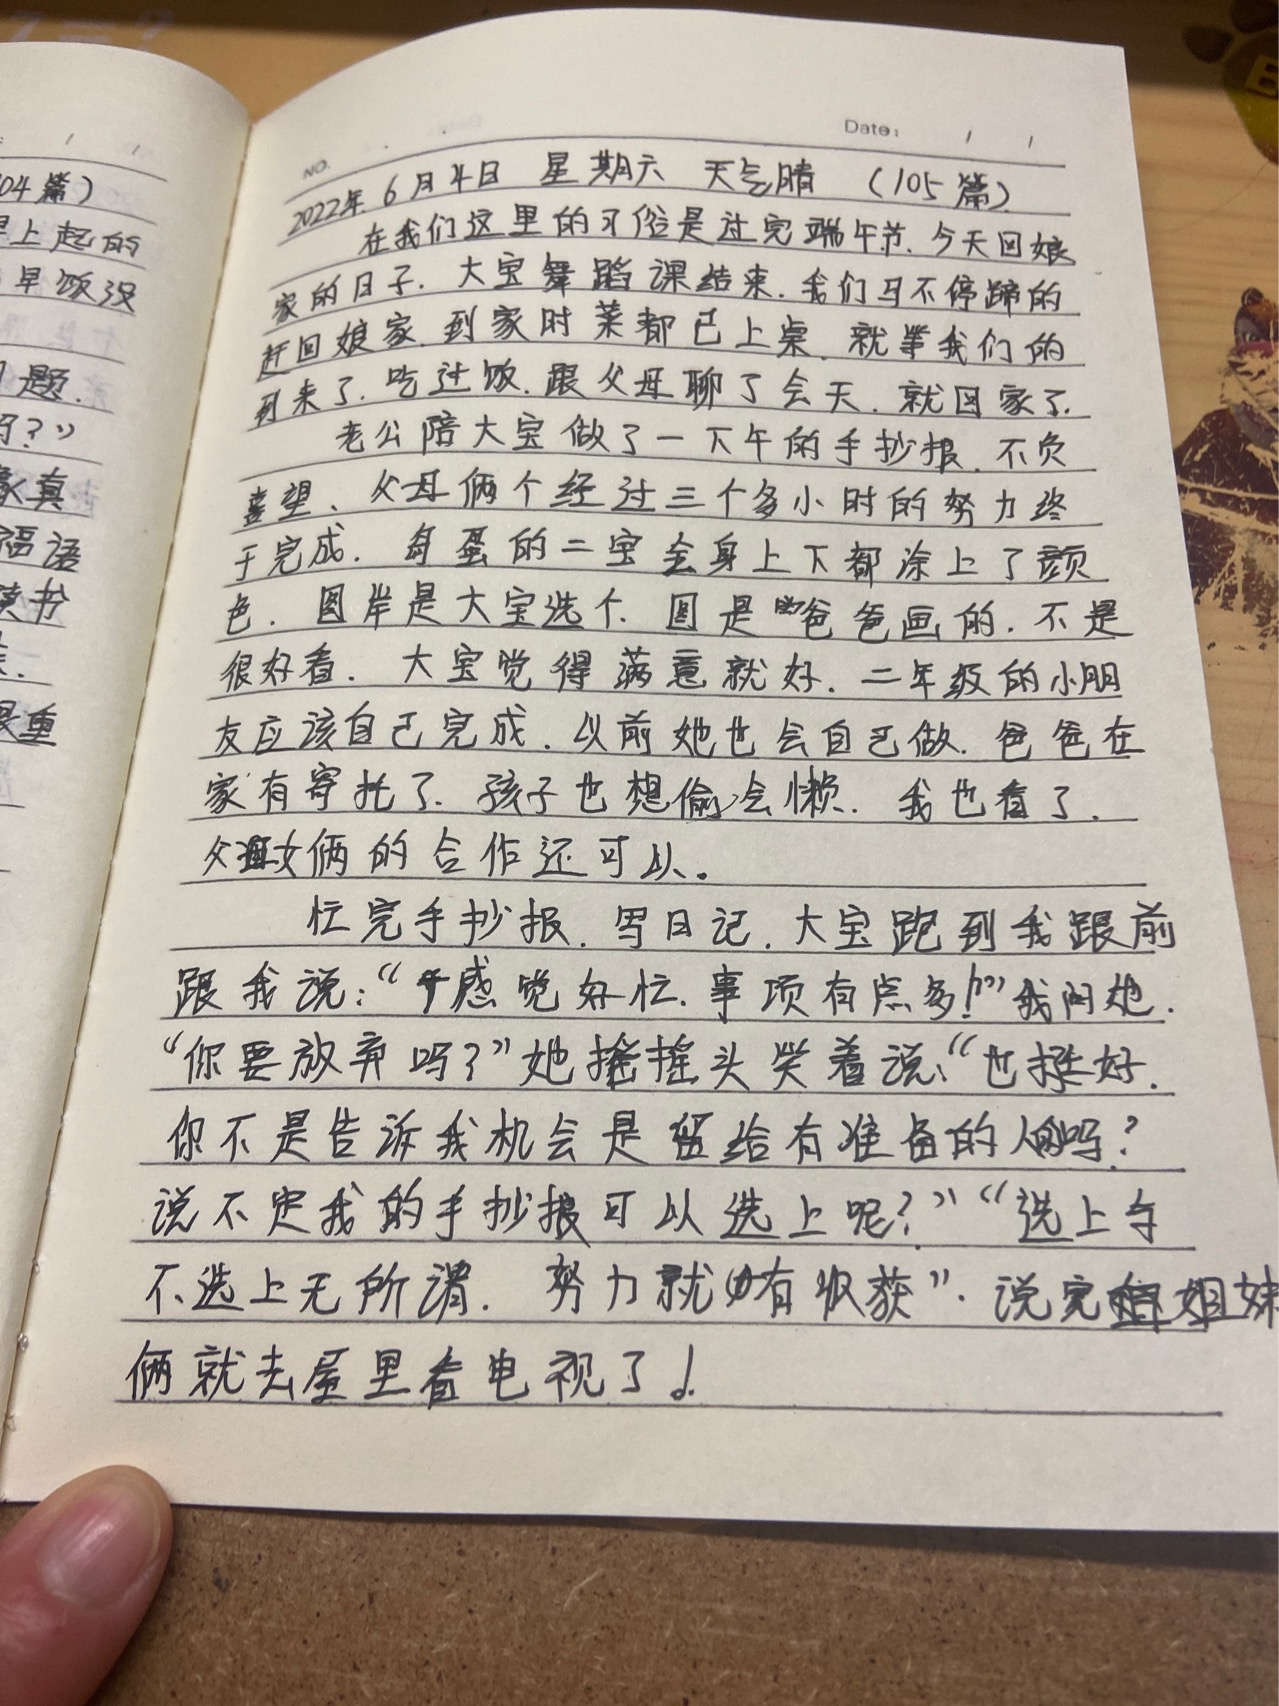 04篇)
早上起的
早饭没
题.
?”
真
福语
读书
重
NO.
Date: / /
2022年 6月4日 星期六 天气晴 (105篇)
在我们这里的习俗是过完端午节.今天回娘
家的日子.大宝舞蹈课结束.我们马不停蹄的
赶回娘家.到家时菜都已上桌.就等我们的
到来了.吃过饭.跟父母聊了会天.就回家了.
老公陪大宝做了一下午的手抄报.不负
喜望、父母俩个经过三个多小时的努力终
于完成.捣蛋的二宝全身上下都涂上了颜
色.图岸是大宝选个.图是爸爸画的.不是
很好看.大宝觉得满意就好.二年级的小朋
友应该自己完成.以前她也会自己做.爸爸在
家有寄托了.孩子也想偷会懒.我也看了.
父女俩的合作还可以。
忙完手抄报.写日记.大宝跑到我跟前
跟我说:“感觉好忙.事项有点多!”我问她.
“你要放弃吗?”她摇摇头笑着说:“也挺好.
你不是告诉我机会是留给有准备的人吗?
说不定我的手抄报可以选上呢?”“选上与
不选上无所谓.努力就有收获”.说完姐妹
俩就去屋里看电视了!